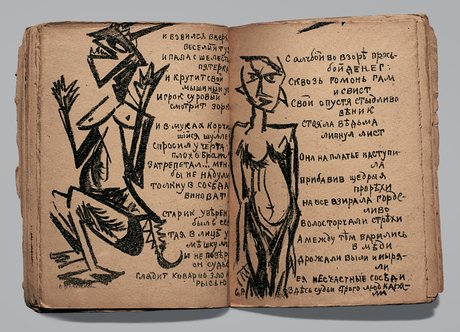 и взвился вверх
веселый туз
и пала с шелестом
пятерка
и крутит свой
мышиный ус
игрок суровый
смотрит зорко
и в муках корчив
шійся шуллер
спросил у черта:
плохо брат
затрепетал... меня
бы не надули
толкну в соседа
виноват
старик уверен
был в себе
тая в лице ус
мешку мы
и не поверил
он судьбе
глядит коварно зло
рысью
С алчбой во взорѣ прось
бой денег
Сквозь гомонь гам
и свист
Свой опустя стыдливо
вѣник
стояла вѣдьма
липнул лист
Она на платье наступи
ла
прибавив щедрыя
прорѣхи
на все взирала гордѣ
ливо
волос торчали стрѣхи
А между тѣм варились
в мѣди
дрожали выли и ныря
ли
ея несчастные сосѣди
здесь судьи строго
кара
ли